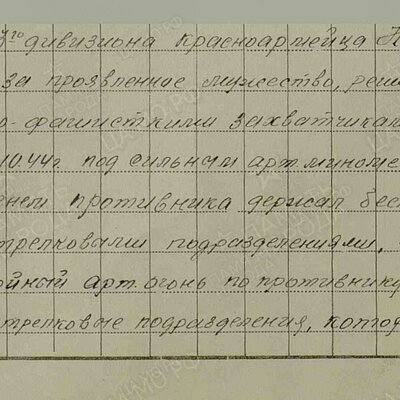 го дивизиона красноармейца
за проявленное мужество, реш
о-фашисткими захватчикам
10.44г. под сильным арт. миноме
нем противника держал бес
трелковыми подразделениями,
ойный арт. огонь по противнику
трелковые подразделения, котор